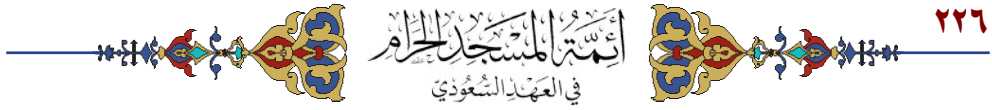 ٢٢٦
أَئِمَّةُ المَسْجِدِ الحَرَامِ
فِي العَهْدِ السُّعُودِيّ